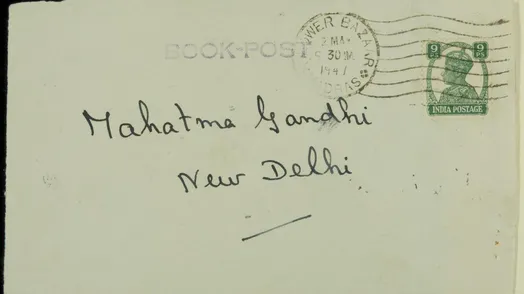 BOOK-POST
FLOWER BAZAAR
2 MA
30
1947
MADRAS
9 PS
9 PS
INDIA POSTAGE
Mahatma Gandhi
New Delhi